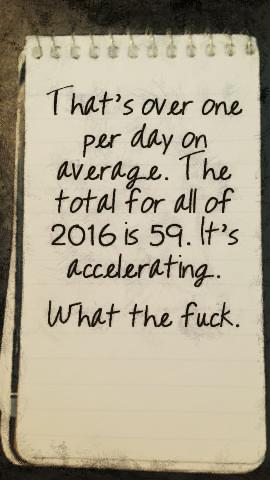 That's over one
per day on
average. The
total for all of
2016 is 59. It's
accelerating.
What the fuck.